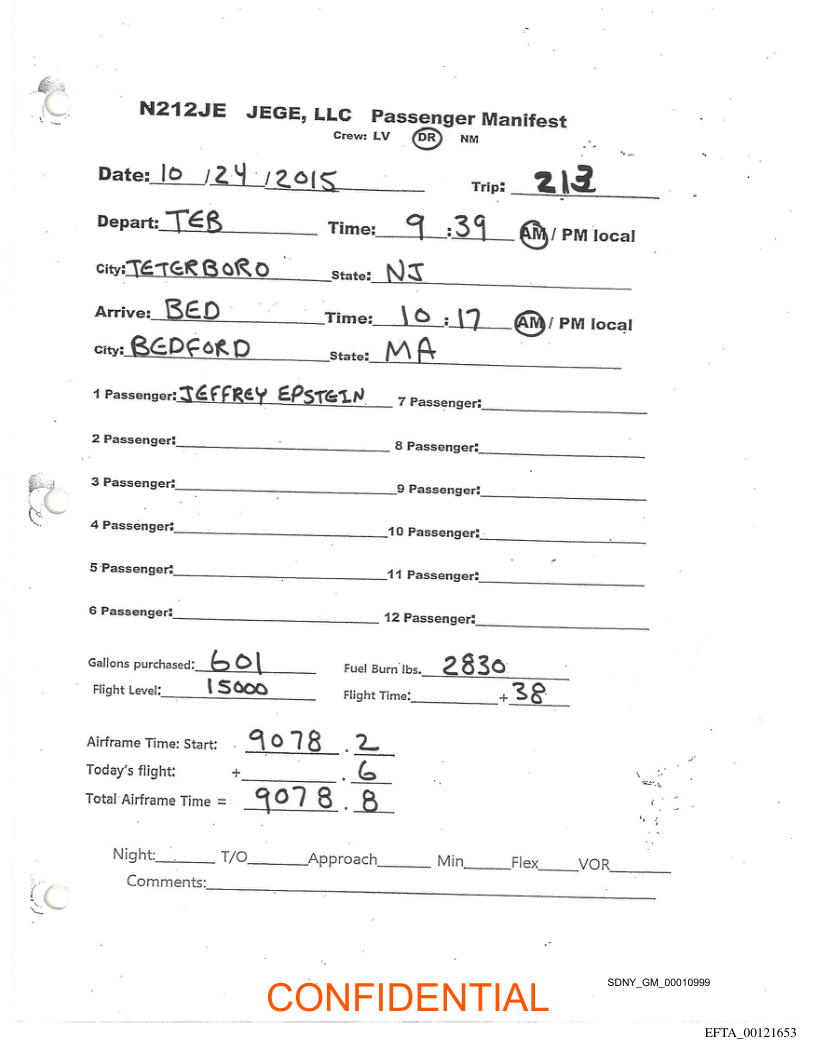 N212JE JEGE, LLC Passenger Manifest
Crew: LV DR NM
Date: 10 /24 /2015 Trip: 213
Depart: TEB Time: 9 :39 AM / PM local
City: TETERBORO State: NJ
Arrive: BED Time: 10 :17 AM / PM local
City: BEDFORD State: MA
1 Passenger: JEFFREY EPSTEIN 7 Passenger:
2 Passenger: 8 Passenger:
3 Passenger: 9 Passenger:
4 Passenger: 10 Passenger:
5 Passenger: 11 Passenger:
6 Passenger: 12 Passenger:
Gallons purchased: 601 Fuel Burn lbs. 2830
Flight Level: 15000 Flight Time: +38
Airframe Time: Start: 9078 .2
Today's flight: + .6
Total Airframe Time = 9078 .8
Night: T/O Approach Min Flex VOR
Comments:
SDNY_GM_00010999
CONFIDENTIAL
EFTA_00121653